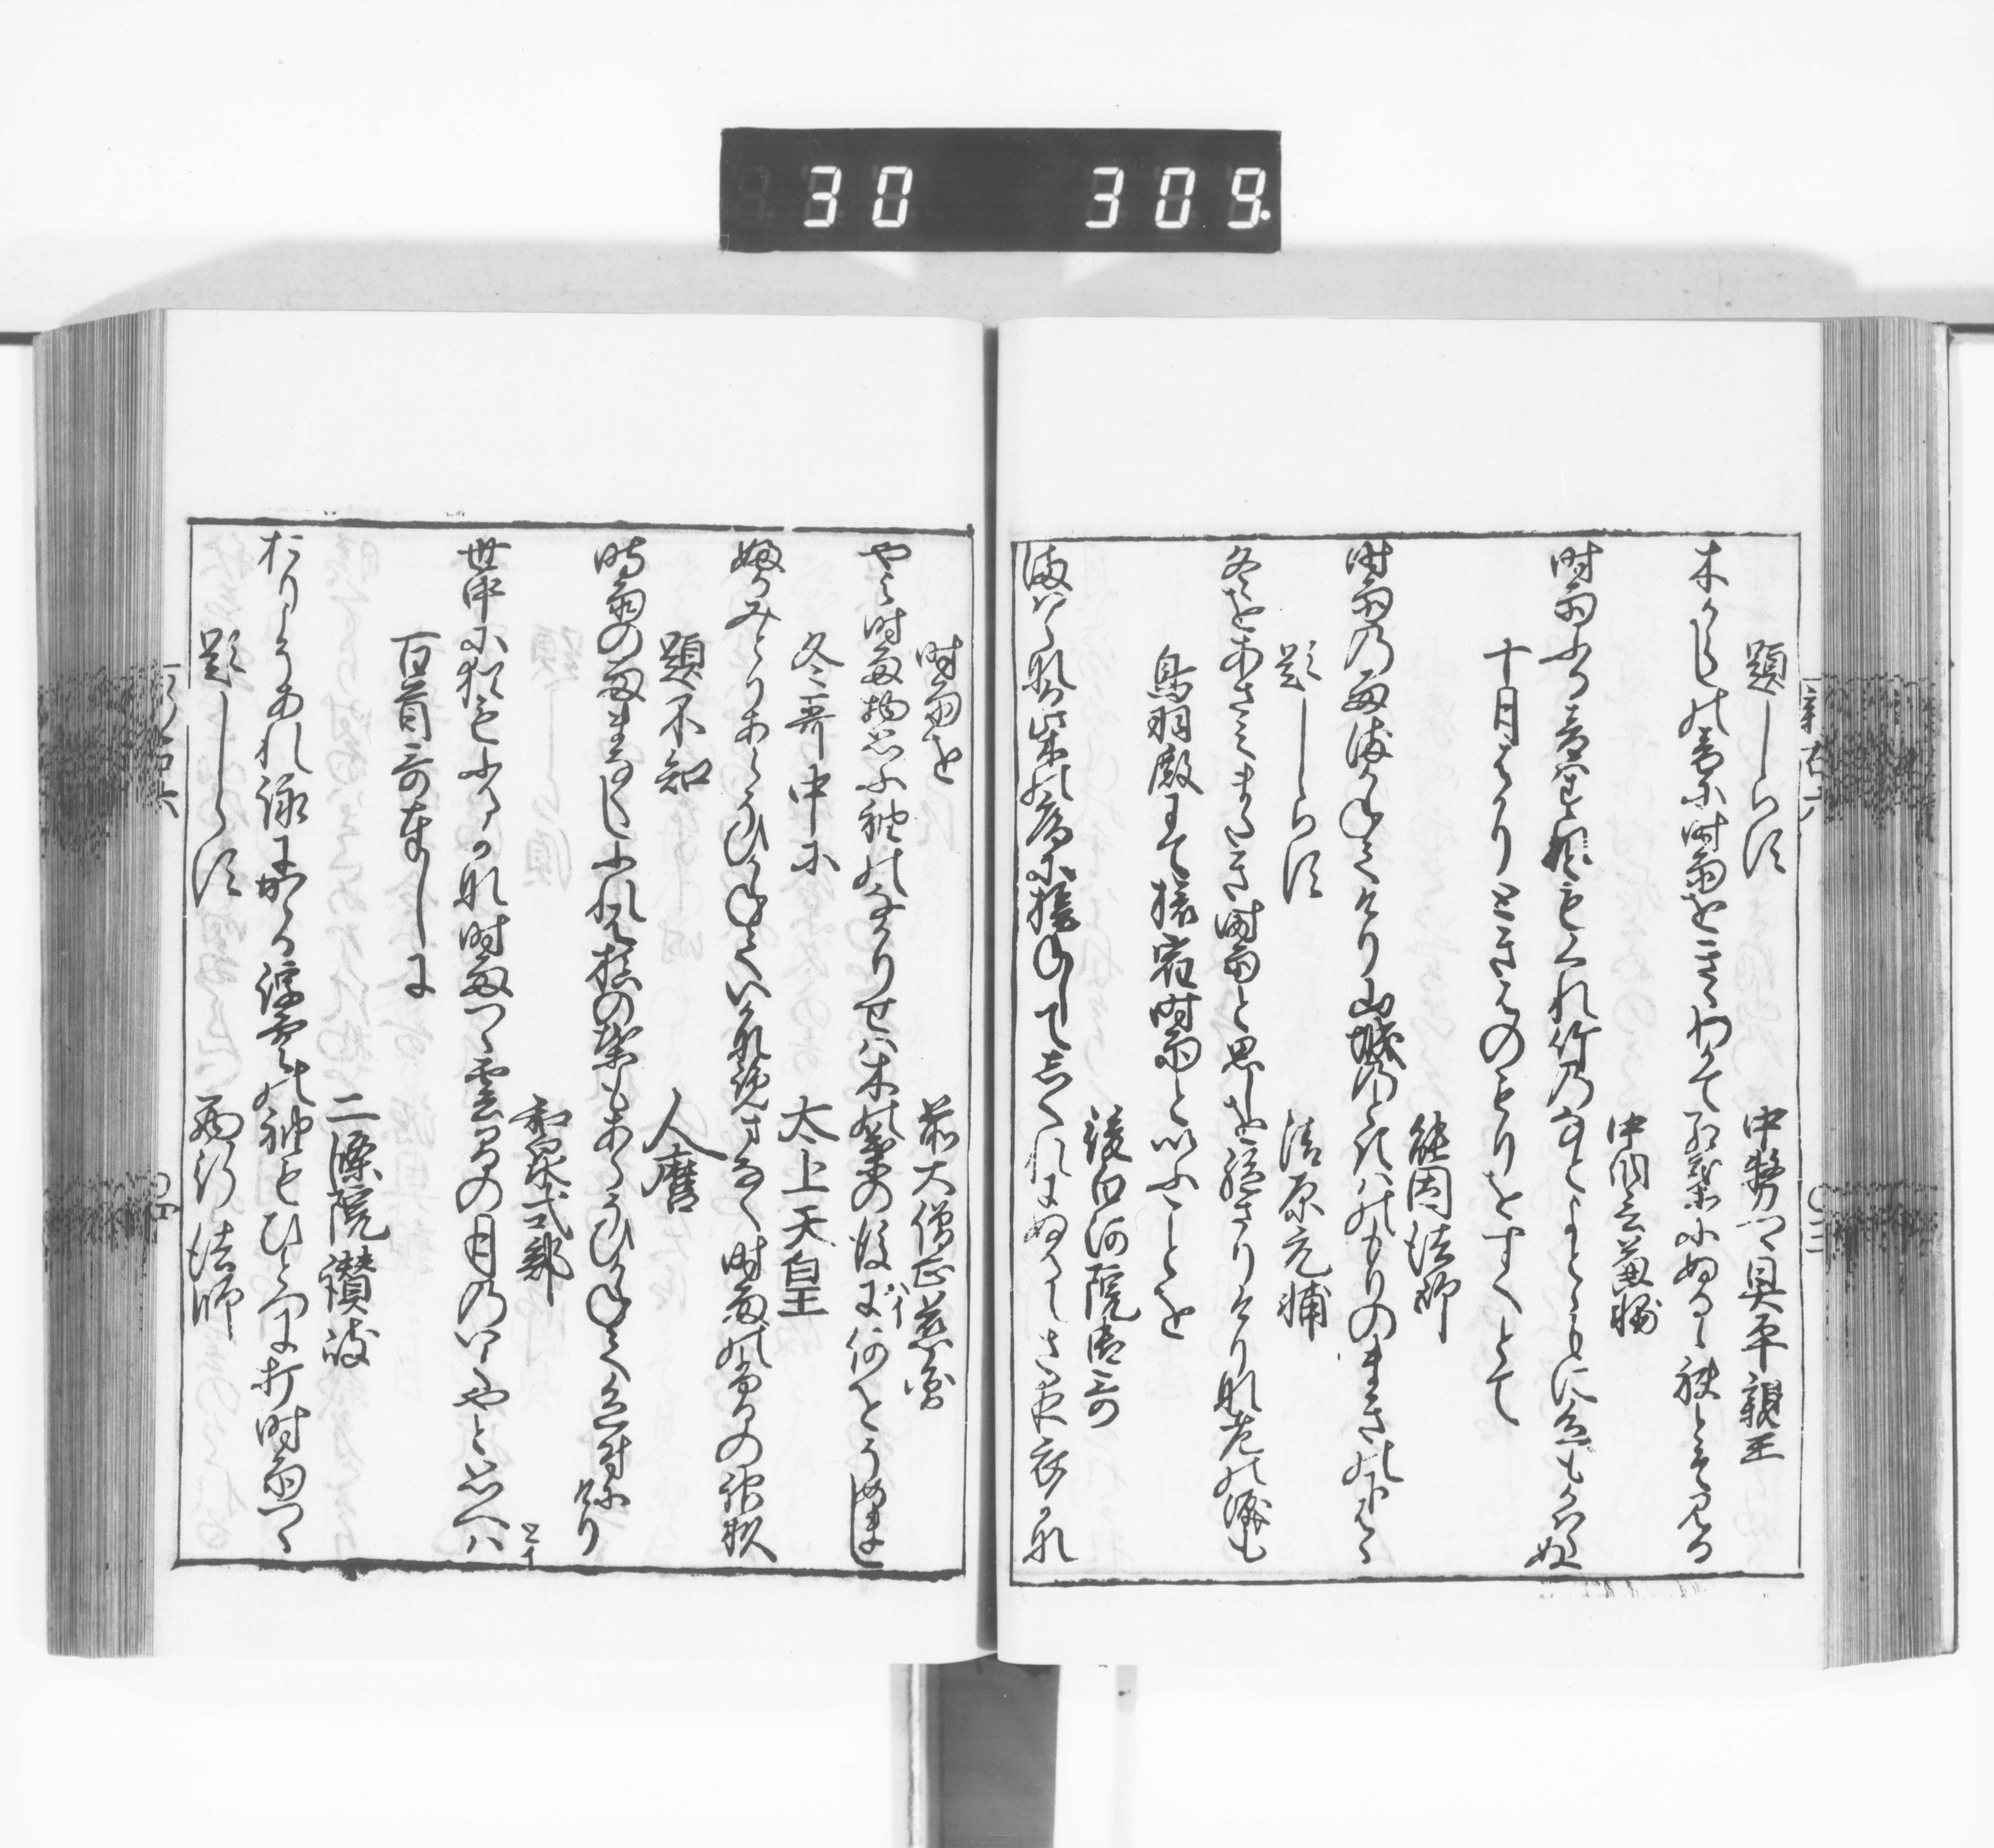 30 309
新古六
〇三
題しらす 中務卿具平親王
木からしの音に時雨をきゝわかて紅葉にぬるゝ袂とそみる
中納言兼輔
時雨ふる音はすれともくれ竹のなとよとゝもに色もかはらぬ
十月はかりときはのもりをすくとて
能因法師
時雨の雨染かねてけり山城のときはのもりのまきの下葉は
題しらす 清原元輔
冬をあさみまたき時雨と思しを絶さりけりな老の涙も
鳥羽殿にて旅宿時雨といふことを
後白河院御哥
まはらなる柴の庵に旅ねして時雨にぬるゝさよ衣かな
時雨を 前大僧正慈円
やよ時雨物思ふ袖のなかりせは木の葉の後に何をそめまし
冬哥中に 太上天皇
ふかみとりあらそひかねていかならんまなく時雨のふるの神杉
題不知 人麿
時雨の雨まなくしふれは槙の葉もあらそひかねて色付にけり
和泉式部
世中に猶もふるかな時雨つゝ雲間の月のいてやと思へは
百首哥奉しに
二條院讃岐
おりこそあれ詠にかゝる浮雲の袖もひとつに打時雨つゝ
題しらす 西行法師